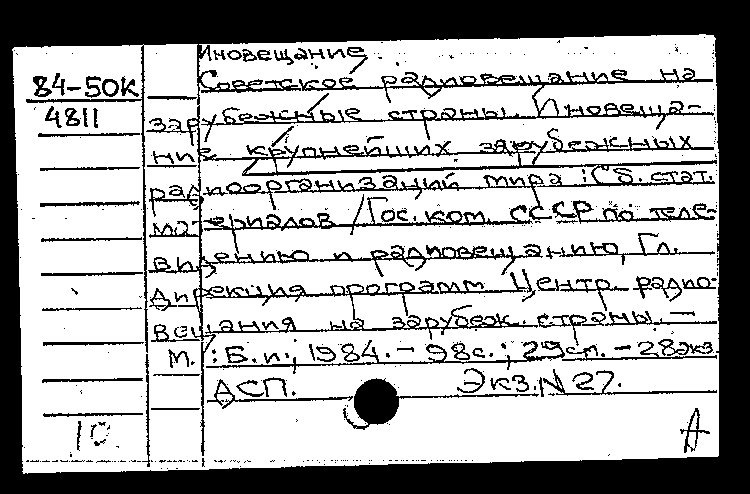 Иновещание
84-50К
4811
Советское радиовещание на
зарубежные страны. Иновеща-
ние крупнейших зарубежных
радиоорганизаций мира : Сб. стат.
материалов / Гос. ком. СССР по теле-
видению и радиовещанию, Гл.
дирекция программ Центр. радио-
вещания на зарубеж. страны. —
М. : Б. и., 1984. — 98с. ; 29см. — 28экз.
ДСП. Экз. N 27.
10
А